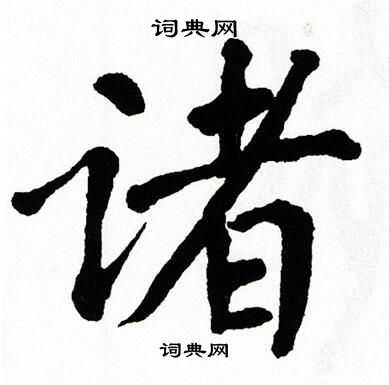 词典网
诸
词典网